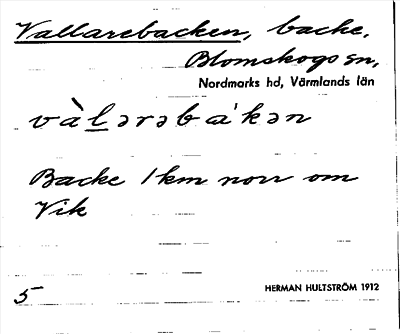 Vallarebacken, backe.
Blomskogs sn,
Nordmarks hd, Värmlands län
vàl̲ərəbákən
Backe 1 km norr om
Vik
5
HERMAN HULTSTRÖM 1912